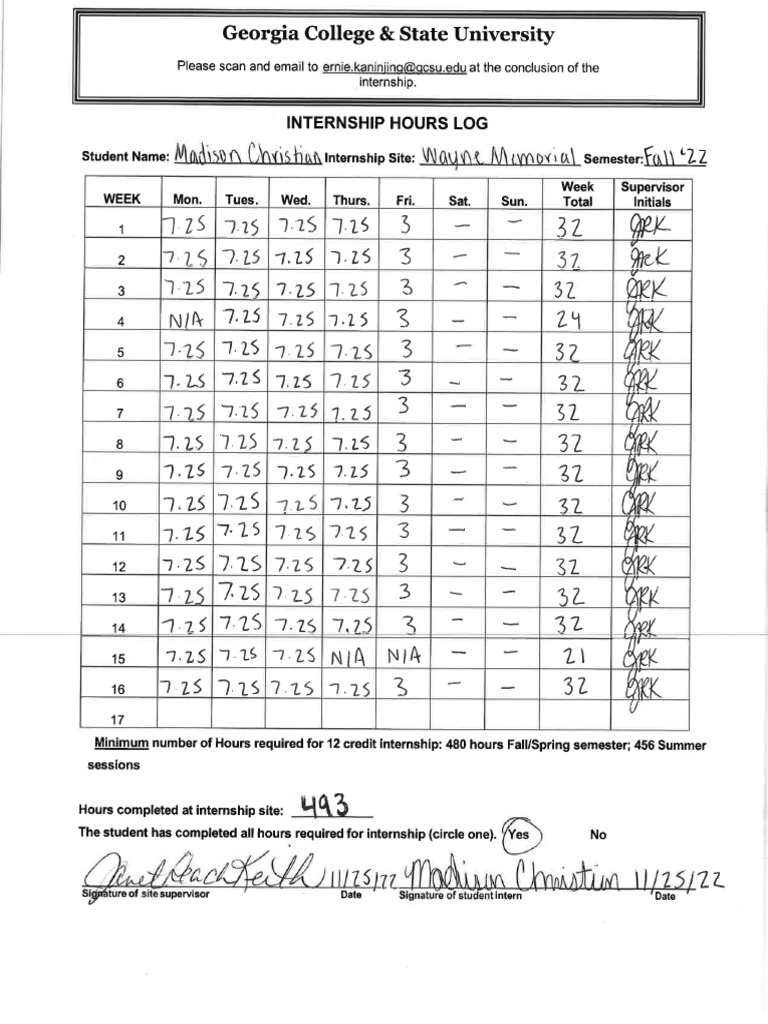 Georgia College & State University
Please scan and email to ernie.kaninjing@gcsu.edu at the conclusion of the
internship.
INTERNSHIP HOURS LOG
Student Name: Madison Christian Internship Site: Wayne Memorial Semester: Fall '22
WEEK Mon. Tues. Wed. Thurs. Fri. Sat. Sun. Week Total Supervisor Initials
1 7.25 7.25 7.25 7.25 3 – – 32 JRK
2 7.25 7.25 7.25 7.25 3 – – 32 JRK
3 7.25 7.25 7.25 7.25 3 – – 32 JRK
4 N/A 7.25 7.25 7.25 3 – – 24 JRK
5 7.25 7.25 7.25 7.25 3 – – 32 JRK
6 7.25 7.25 7.25 7.25 3 – – 32 JRK
7 7.25 7.25 7.25 7.25 3 – – 32 JRK
8 7.25 7.25 7.25 7.25 3 – – 32 JRK
9 7.25 7.25 7.25 7.25 3 – – 32 JRK
10 7.25 7.25 7.25 7.25 3 – – 32 JRK
11 7.25 7.25 7.25 7.25 3 – – 32 JRK
12 7.25 7.25 7.25 7.25 3 – – 32 JRK
13 7.25 7.25 7.25 7.25 3 – – 32 JRK
14 7.25 7.25 7.25 7.25 3 – – 32 JRK
15 7.25 7.25 7.25 N/A N/A – – 21 JRK
16 7.25 7.25 7.25 7.25 3 – – 32 JRK
17
Minimum number of Hours required for 12 credit internship: 480 hours Fall/Spring semester; 456 Summer
sessions
Hours completed at internship site: 493
The student has completed all hours required for internship (circle one). Yes No
Janet Roach Keith 11/25/22 Madison Christian 11/25/22
Signature of site supervisor Date Signature of student intern Date